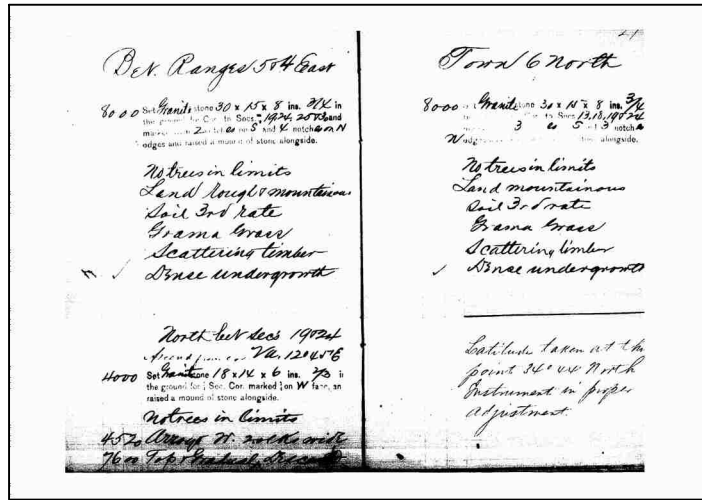 Bet. Ranges 5 & 4 East
8000 Set Granite stone 30 x 15 x 8 ins. 3/4 in
the ground for Cor. to Secs. 19 & 24, 25 & 30 and
2 5 and 4 notches on N
edges and raised a mound of stone alongside.
No trees in limits
Land Rough & mountainous
Soil 3rd rate
Grama Grass
Scattering timber
Dense undergrowth
North bet secs 19 & 24
Va, 12° 45' E
4000 Set Granite stone 18 x 14 x 6 ins. 2/3 in
the ground for ¼ Sec. Cor. marked ¼ on W face, an
raised a mound of stone alongside.
No trees in limits
4520 Arroyo W.
7600 Top Gradual Descent
Town 6 North
8000 Granite stone 30 x 15 x 8 ins. 3/4
Cor. to Secs. 13, 18, 19 & 24
3 5 3 notch
edges alongside.
No trees in limits
Land mountainous
Soil 3rd rate
Grama Grass
Scattering timber
Dense undergrowth
Latitude taken at this
point 34° 44 North
Instrument in proper
adjustment